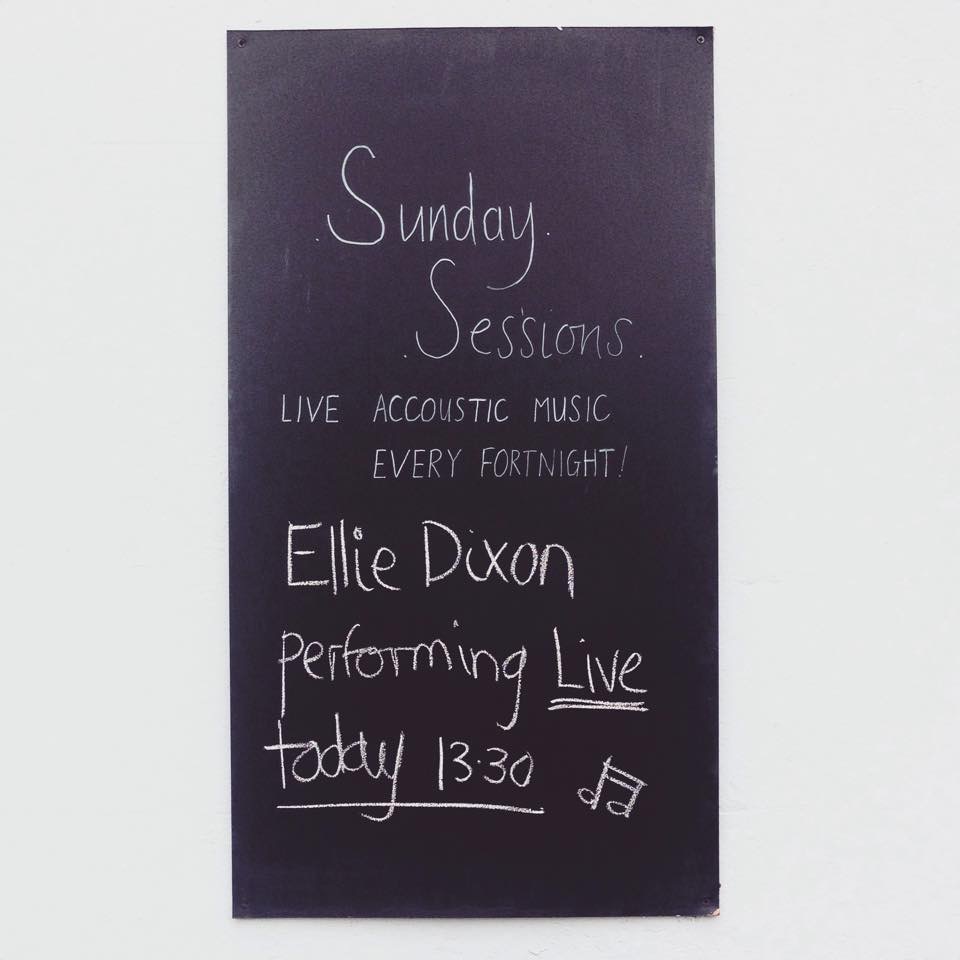 . Sunday .
. Sessions .
LIVE ACCOUSTIC MUSIC
EVERY FORTNIGHT!
Ellie Dixon
performing Live
today 13.30